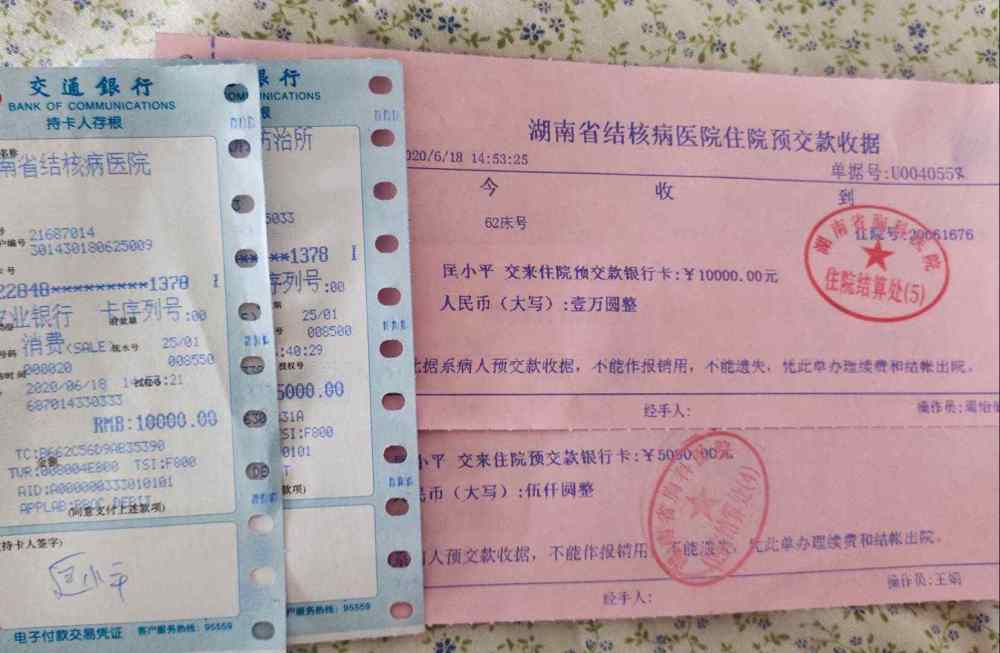 交通銀行
BANK OF COMMUNICATIONS
持卡人存根
南省结核病医院
21687014
301430180625009
22848*********1378 I
业银行 卡序列号:00
消费(SALE) 25/01
000020 008550
2020/06/18
687014330333
RMB:10000.00
TC:B662C56D9AB35390
TVR:008004E800 TSI:F800
AID:A000000333010101
APPLAB:PBOC DEBIT
(同意支付上述款项)
持卡人签字)
匡小平
电子付款交易凭证 客户服务热线: 95559
銀行
COMMUNICATIONS
根
防治所
5033
****1378 I
序列号:00
25/01
008500
:40:29
5000.00
31A
TSI:F800
款项)
客户服务热线: 95559
湖南省结核病医院住院预交款收据
2020/6/18 14:53:25
单据号:U004055
今 收 到
62床号
住院号:20061676
匡小平 交来住院预交款银行卡:￥10000.00元
人民币（大写）:壹万圆整
湖南省胸科医院
住院结算处(5)
此据系病人预交款收据，不能作报销用，不能遗失，凭此单办理续费和结帐出院。
经手人: 操作员:
小平 交来住院预交款银行卡:￥5000.00元
民币（大写）:伍仟圆整
病人预交款收据，不能作报销用，不能遗失，凭此单办理续费和结帐出院。
经手人: 操作员:王娟